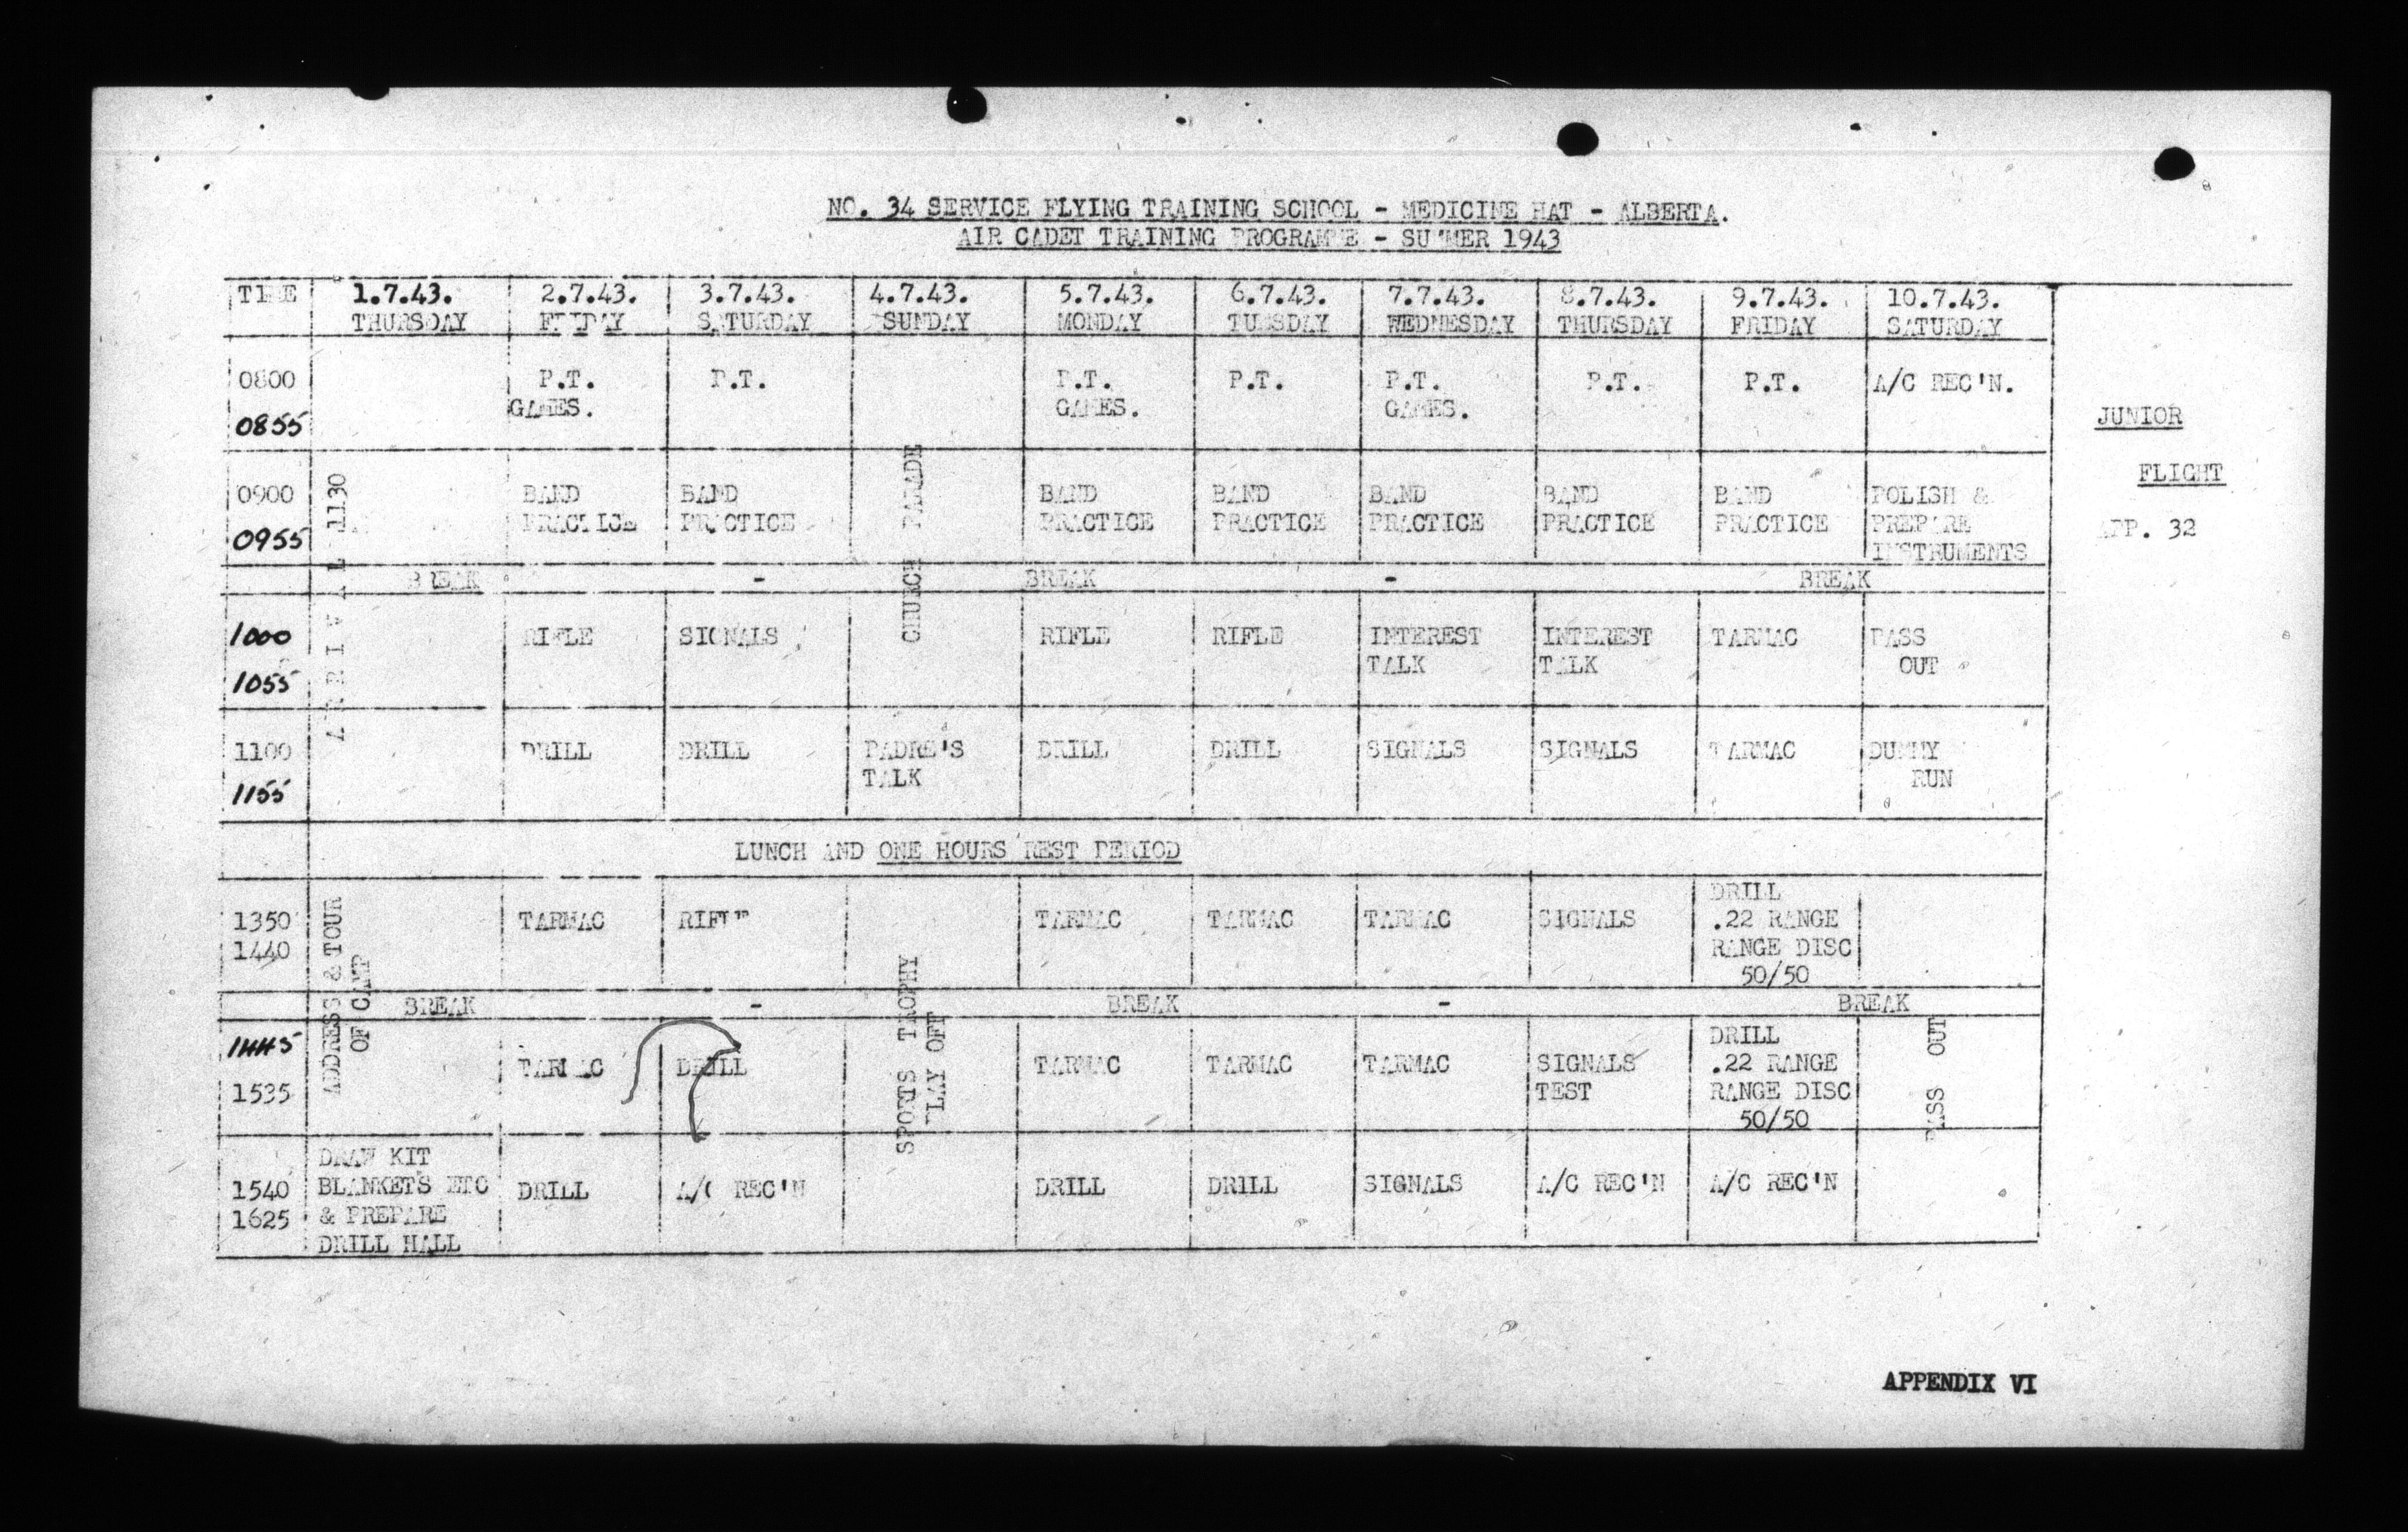 NO. 34 SERVICE FLYING TRAINING SCHOOL - MEDICINE HAT - ALBERTA.
AIR CADET TRAINING PROGRAMME - SUMMER 1943
TIME 1.7.43. 2.7.43. 3.7.43. 4.7.43. 5.7.43. 6.7.43. 7.7.43. 8.7.43. 9.7.43. 10.7.43.
THURSDAY FRIDAY SATURDAY SUNDAY MONDAY TUESDAY WEDNESDAY THURSDAY FRIDAY SATURDAY
0800 P.T. P.T. P.T. P.T. P.T. P.T. P.T. A/C REC'N.
0855 GAMES. GAMES. GAMES.
JUNIOR
FLIGHT
APP. 32
ARRIVAL 1130
CHURCH PARADE
0900 BAND BAND BAND BAND BAND BAND BAND POLISH &
0955 PRACTICE PRACTICE PRACTICE PRACTICE PRACTICE PRACTICE PRACTICE PREPARE
INSTRUMENTS
BREAK - BREAK - BREAK
1000 RIFLE SIGNALS RIFLE RIFLE INTEREST INTEREST TARMAC PASS
1055 TALK TALK OUT
1100 DRILL DRILL PADRE'S DRILL DRILL SIGNALS SIGNALS TARMAC DUMMY
1155 TALK RUN
LUNCH AND ONE HOURS REST PERIOD
ADDRESS & TOUR
OF CAMP
SPORTS TROPHY
PLAY OFF
DRILL
1350 TARMAC RIFLE TARMAC TARMAC TARMAC SIGNALS .22 RANGE
1440 RANGE DISC
50/50
BREAK - BREAK - BREAK
PASS OUT
1445 DRILL
TARMAC DRILL TARMAC TARMAC TARMAC SIGNALS .22 RANGE
1535 TEST RANGE DISC
50/50
DRAW KIT
1540 BLANKETS ETC DRILL A/C REC'N DRILL DRILL SIGNALS A/C REC'N A/C REC'N
1625 & PREPARE
DRILL HALL
APPENDIX VI